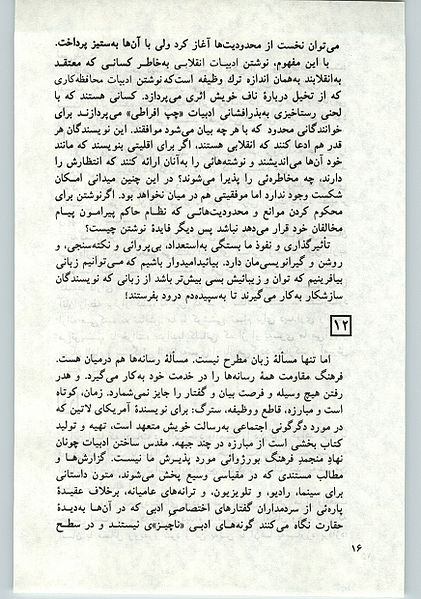 می‌توان نخست از محدودیت‌ها آغاز کرد ولی با آن‌ها به‌ستیز پرداخت.
با این مفهوم، نوشتن ادبیات انقلابی به‌خاطر کسانی که معتقد
به‌انقلابند به‌همان اندازه ترك وظیفه است‌که‌نوشتن ادبیات محافظه‌کاری
که از تخیل دربارهٔ ناف خویش اثری می‌پردازد. کسانی هستند که با
لحنی رستاخیزی به‌بذرافشانی ادبیات «چپ افراطی» می‌پردازند برای
خوانندگانی محدود که با هر چه بیان می‌شود موافقند. این نویسندگان هر
قدر هم ادعا کنند که انقلابی هستند، اگر برای اقلیتی بنویسند که مانند
خود آن‌ها می‌اندیشند و نوشته‌هائی را به‌آنان ارائه کنند که انتظارش را
دارند، چه مخاطره‌ئی را پذیرا می‌شوند؟ در این چنین میدانی امکان
شکست وجود ندارد اما موفقیتی هم در میان نخواهد بود. اگرنوشتن برای
محکوم کردن موانع و محدودیت‌هائی که نظام حاکم پیرامون پیام
مخالفان خود قرار می‌دهد نباشد پس دیگر فایدهٔ نوشتن چیست؟
تأثیرگذاری و نفوذ ما بستگی به‌استعداد، بی‌پروائی و نکته‌سنجی، و
روشن و گیرانویسی‌مان دارد. بیائیدامیدوار باشیم که می‌توانیم زبانی
بیافرینیم که توان و زیبائیش بسی بیش‌تر باشد از زبانی که نویسندگان
سازشکار به‌کار می‌گیرند تا به‌سپیده‌دم درود بفرستند!
۱۲
اما تنها مسألهٔ زبان مطرح نیست. مسألهٔ رسانه‌ها هم درمیان هست.
فرهنگ مقاومت همهٔ رسانه‌ها را در خدمت خود به‌کار می‌گیرد. و هدر
رفتن هیچ وسیله و فرصت بیان و گفتار را جایز نمی‌شمارد. زمان، کوتاه
است و مبارزه، قاطع و وظیفه، سترگ: برای نویسندهٔ آمریکای لاتین که
در مورد دگرگونی اجتماعی به‌رسالت خویش متعهد است، تهیه و تولید
کتاب بخشی است از مبارزه در چند جبهه. مقدس ساختن ادبیات چونان
نهادِ منجمدِ فرهنگ بورژوائی مورد پذیرش ما نیست. گزارش‌ها و
مطالب مستندی که در مقیاسی وسیع پخش می‌شوند، متون داستانی
برای سینما، رادیو، و تلویزیون، و ترانه‌های عامیانه، برخلاف عقیدهٔ
پاره‌ئی از سردمداران گفتارهای اختصاصی ادبی که در آن‌ها به‌دیدهٔ
حقارت نگاه می‌کنند گونه‌های ادبی «ناچیز»ی نیستند و در سطح
۱۶